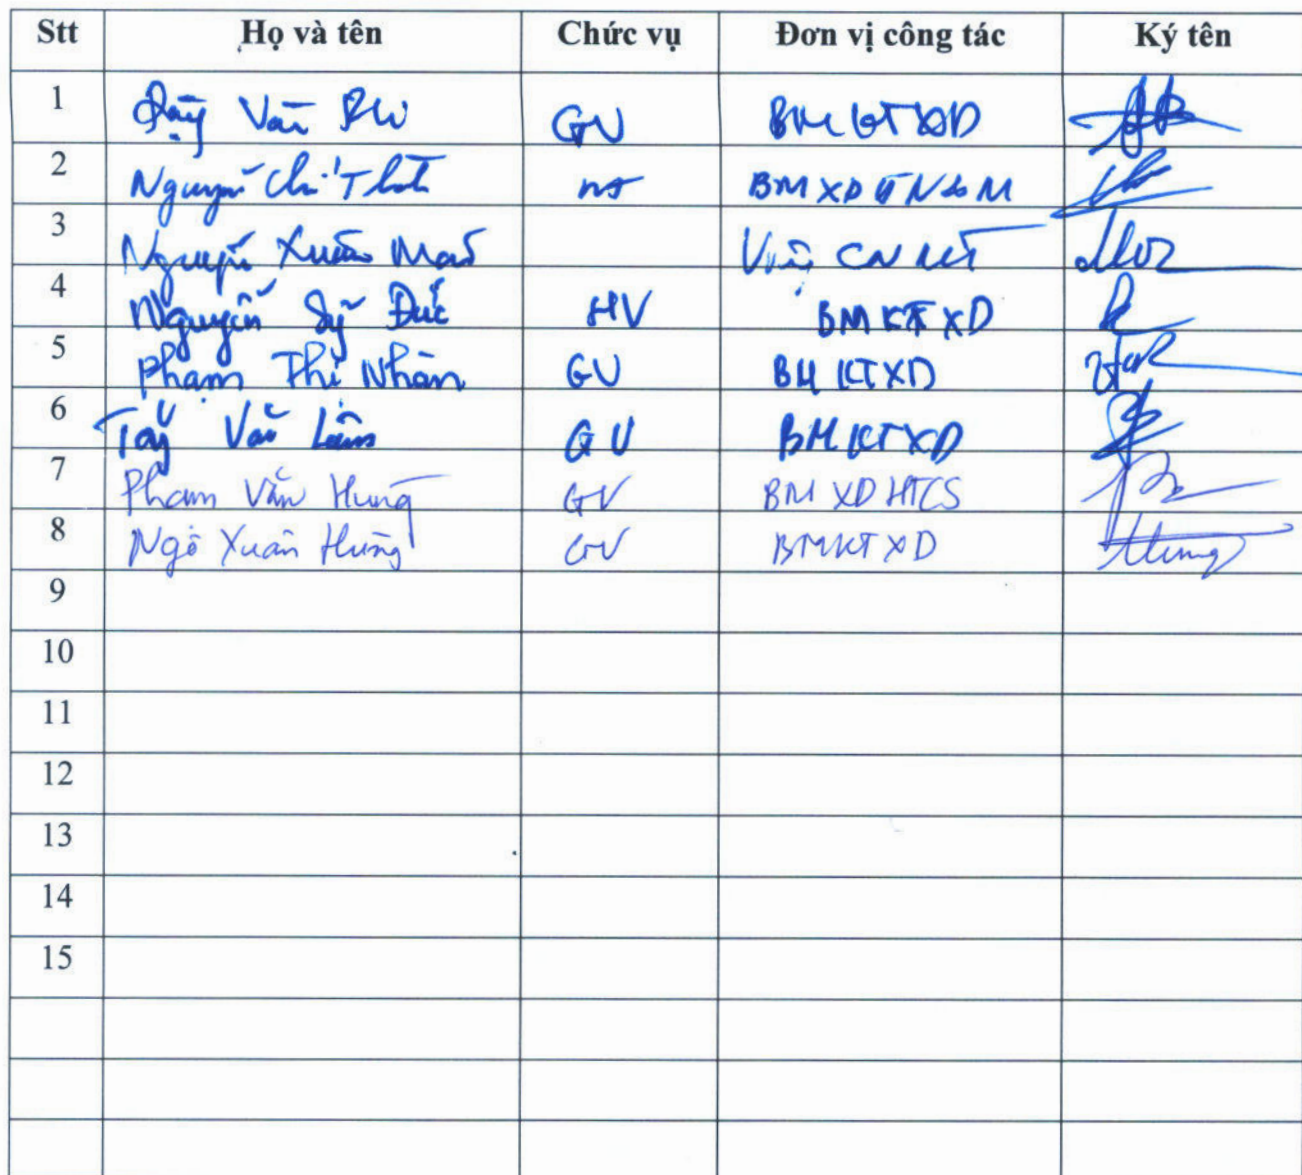 Stt Họ và tên Chức vụ Đơn vị công tác Ký tên
1 Văn GV BM KTXD
2 Nguyễn Chí
3 Nguyễn Xuân Viện CN
4 Nguyễn Sỹ Đức HV BM KT XD
5 Phạm Thị Nhàn GV BM KTXD
6 Văn Lâm GV BM KTXD
7 Phạm Văn Hùng GV BM XD HTCS
8 Ngô Xuân Hùng GV BMKT XD
9
10
11
12
13
14
15